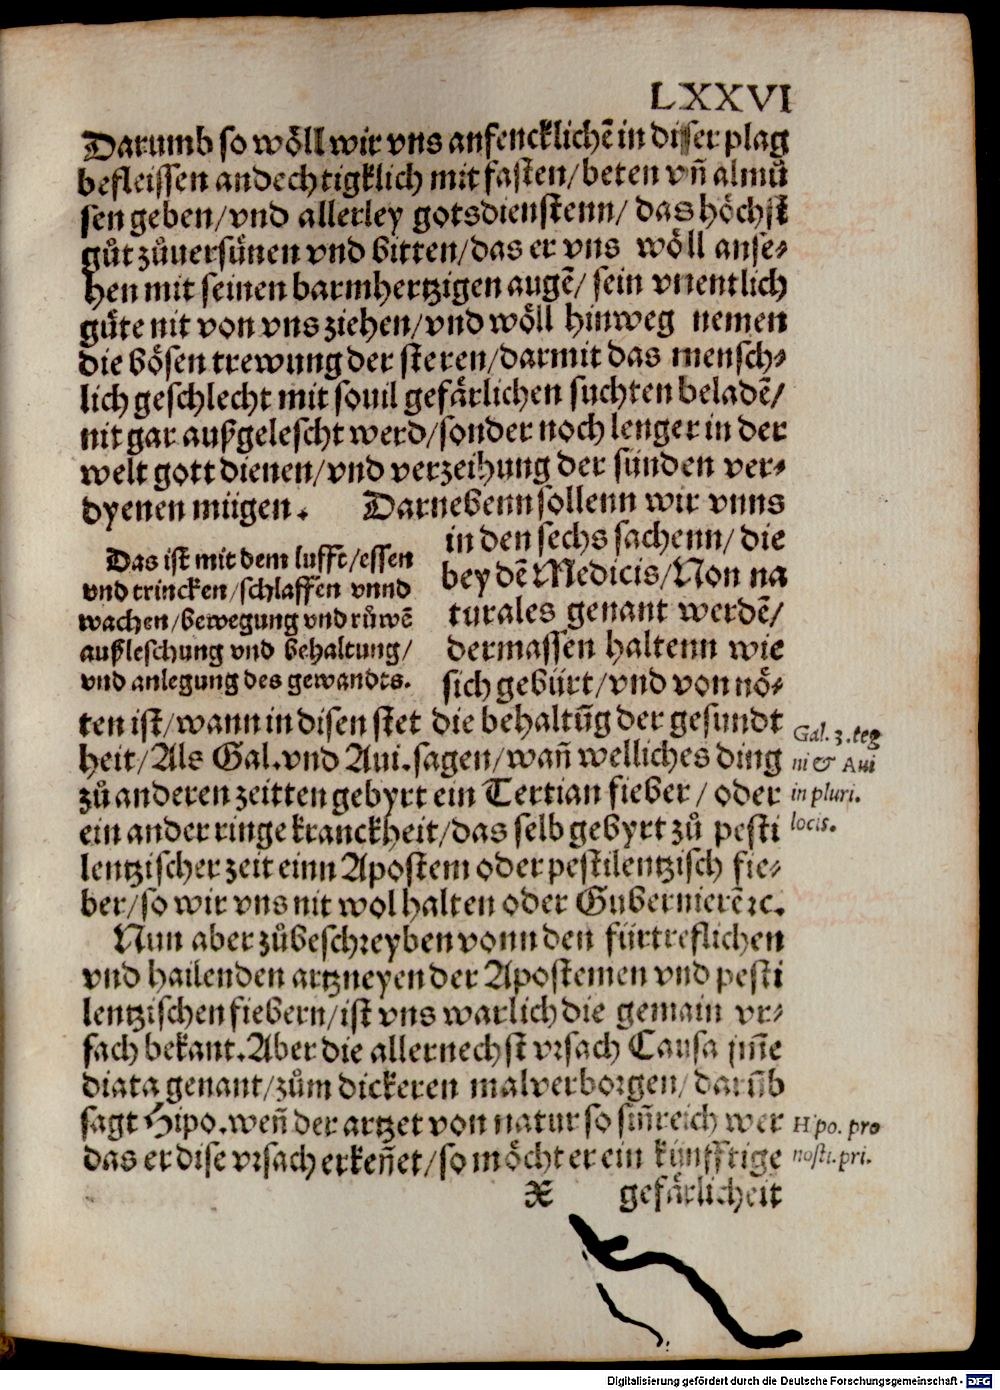 LXXVI
Darumb so wöll wir vns anfencklichẽ in disser plag
befleissen andechtigklich mit fasten/beten vñ almů
sen geben/vnd allerley gotsdienstenn/ das höchst
gůt zůuersünen vnd bitten/das er vns wöll anse-
hen mit seinen barmhertzigen augẽ/ sein vnentlich
gůte nit von vns ziehen/vnd wöll hinweg nemen
die bösen trewung der steren/darmit das mensch-
lich geschlecht mit souil gefärlichen suchten beladẽ/
nit gar außgelescht werd/sonder noch lenger in der
welt gott dienen/vnd verzeihung der sünden ver-
dyenen mügen. Darnebenn sollenn wir vnns
in den sechs sachenn/ die
bey dẽ Medicis/Non na
turales genant werdẽ/
dermassen haltenn wie
sich gebürt/vnd von nö-
Das ist mit dem lufft/essen
vnd trincken/schlaffen vnnd
wachen/bewegung vnd růwẽ
außleschung vnd behaltung/
vnd anlegung des gewandts.
ten ist/wann in disen stet die behaltũg der gesundt
heit/Als Gal.vnd Aui.sagen/wañ welliches ding
zů anderen zeitten gebyrt ein Tertian fieber/ oder
ein ander ringe kranckheit/das selb gebyrt zů pesti
lentzischer zeit einn Apostem oder pestilentzisch fie-
ber/so wir vns nit wol halten oder Gubernierẽ ꝛc.
Gal. 3. teg
ni & Aui
in pluri.
locis.
Nun aber zůbeschreyben vonn den fürtreflichen
vnd hailenden artzneyen der Apostemen vnd pesti
lentzischen fiebern/ist vns warlich die gemain vr-
sach bekant.Aber die allernechst vrsach Causa jm̃e
diata genant/zům dickeren mal verborgen/darũb
sagt Hipo.weñ der artzet von natur so sin̄reich wer
das er dise vrsach erkeñet/so möcht er ein künfftige
Hipo. pro
nosti. pri.
X gefärlicheit
Digitalisierung gefördert durch die Deutsche Forschungsgemeinschaft - DFG